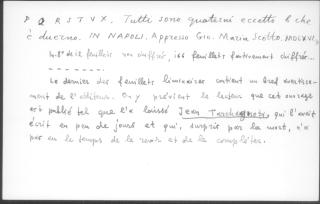 P Q R S T V X. Tutti sono quaterni eccetto b che
è duerno. IN NAPOLI, Appresso Gio. Maria Scotto, MDLXVI,
4.8° de 12 feuillets non chiffrés, 166 feuillets fautivement chiffrés...
Le dernier des feuillets liminaires contient un bref avertisse-
ment de l'éditeur. On y prévient le lecteur que cet ouvrage
est publié tel que l'a laissé Jean qui l'avait
écrit en peu de jours et qui, surpris par la mort, n'a
pas eu le temps de le revoir et de le compléter.